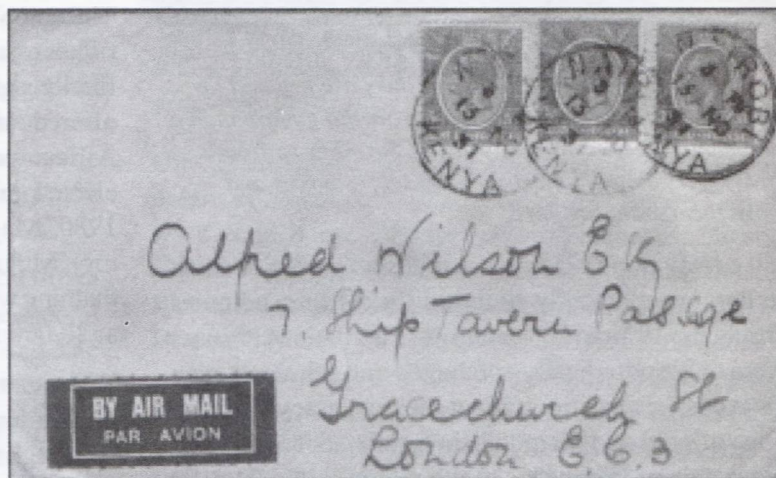 NAIROBI
KENYA
KENYA
KENYA
Alfred Wilson Esq
7. Ship Tavern Passage
Gracechurch St
London E.C.3
BY AIR MAIL
PAR AVION